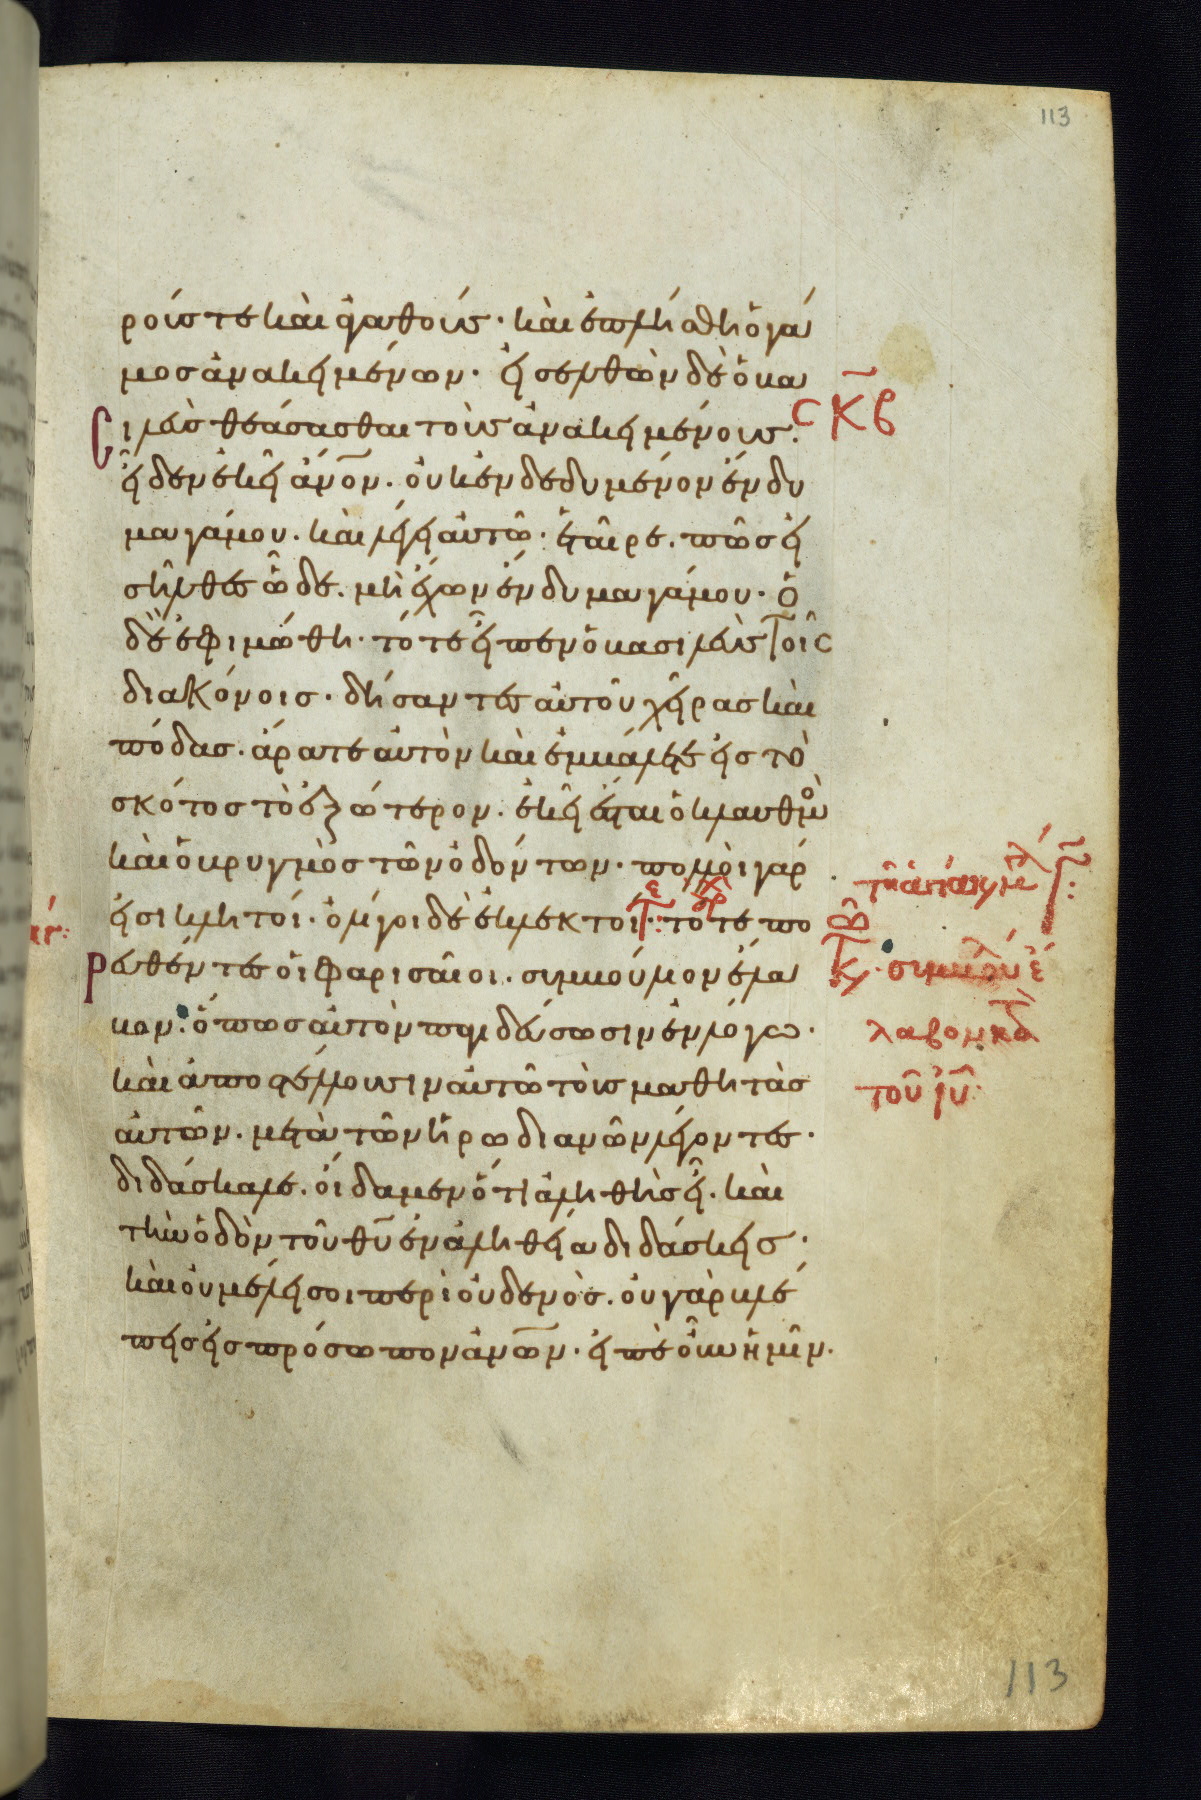 113
ρούς τε καὶ ἀγαθούς· καὶ ἐπλήσθη ὁ γά
μος ἀνακειμένων· εἰσελθὼν δὲ ὁ βα
σιλεὺς θεάσασθαι τοὺς ἀνακειμένους·
ΚΒ
εἶδεν ἐκεῖ ἄνον· οὐκ ἐνδεδυμένον ἔνδυ
μα γάμου· καὶ λέγει αὐτῶ· ἑταῖρε· πῶς εἰ
σῆλθες ὧδε· μὴ ἔχων ἔνδυμα γάμου· ὁ
δὲ ἐφιμώθη· τότε εἶπεν ὁ βασιλεὺς τοῖς
διακόνοις· δήσαντες αὐτοῦ χεῖρας καὶ
πόδας· ἄρατε αὐτὸν καὶ ἐμβάλετε εἰς τὸ
σκότος τὸ ἐξώτερον· ἐκεῖ ἔσται ὁ κλαυθμὸς
καὶ ὁ βρυγμὸς τῶν ὀδόντων· πολλοὶ γάρ
εἰσι κλητοί· ὀλίγοι δὲ ἐκλεκτοί· τότε πο
ρευθέντες οἱ φαρισαῖοι· συμβούλιον ἔλα
βον· ὅπως αὐτὸν παγιδεύσωσιν ἐν λόγω·
καὶ ἀποστέλλουσιν αὐτῶ τοὺς μαθητὰς
αὐτῶν· μετὰ τῶν ἡρωδιανῶν λέγοντες·
διδάσκαλε· οἴδαμεν ὅτι ἀληθὴς εἶ· καὶ
τὴν ὁδὸν τοῦ θυ ἐν ἀληθεία διδάσκεις·
καὶ οὐ μέλει σοι περὶ οὐδενὸς· οὐ γὰρ βλέ
πεις εἰς πρόσωπον ἀνων· εἰπὲ οὖν ἡμῖν·
συμβούλ ἔ
λαβον κα
τοῦ ιυ
113